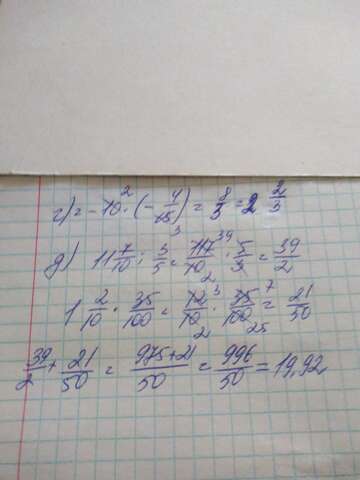 г) = -10² · (- 4/15 3) = 8/3 = 2 2/3
д) 11 7/10 : 3/5 = 117 39/10 2 · 5/3 = 39/2
1 2/10 · 35/100 = 12 3/10 2 · 35 7/100 25 = 21/50
39/2 + 21/50 = 975+21/50 = 996/50 = 19,92